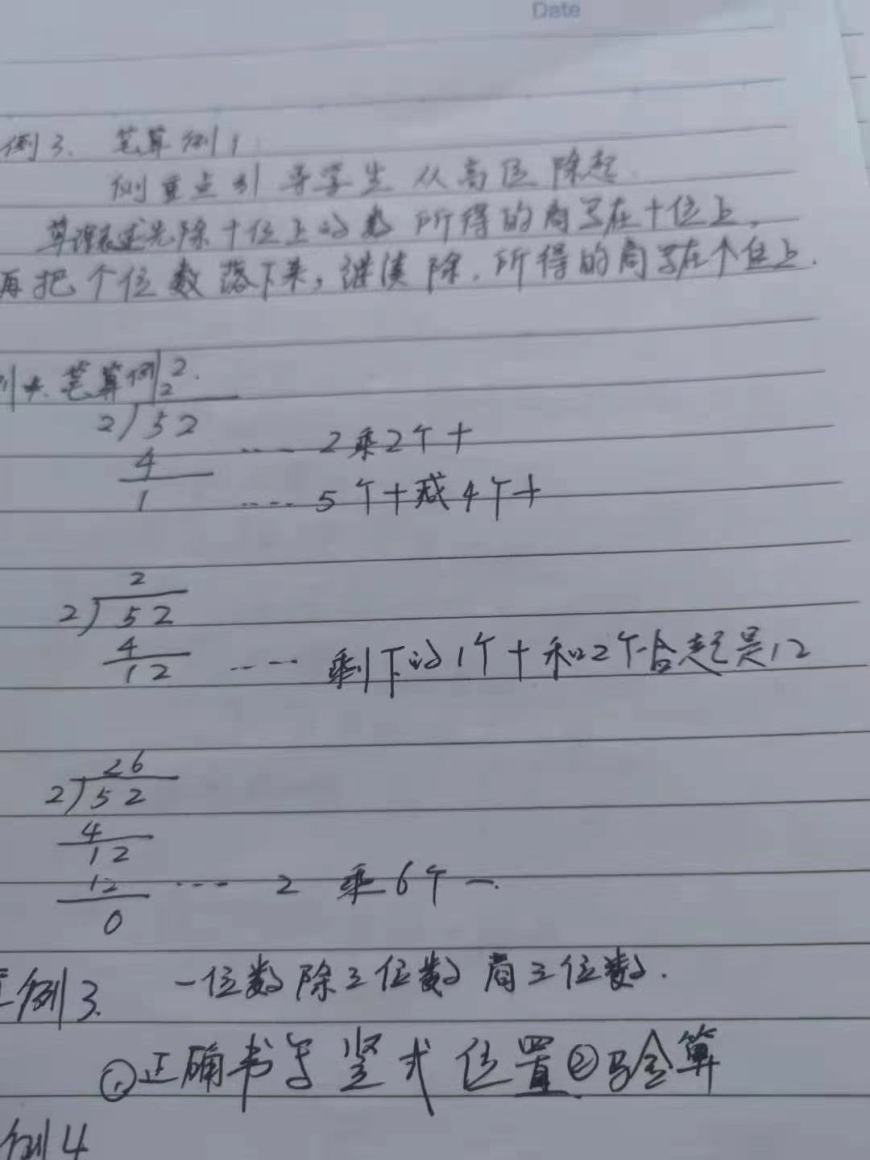 Date
例3. 笔算例1
例重点引导学生从高位除起.
算理表述先除十位上的数所得的商写在十位上,
再把个位数落下来,继续除.所得的商写在个位上.
例4.笔算例2.
2
2)52
4 ···· 2乘2个十
1 ···· 5个十减4个十
2
2)52
4
12 ···· 剩下的1个十和2个合起是12
26
2)52
4
12
12 ···· 2乘6个一.
0
例3. 一位数除三位数商三位数.
①正确书写竖式位置②验算
例4